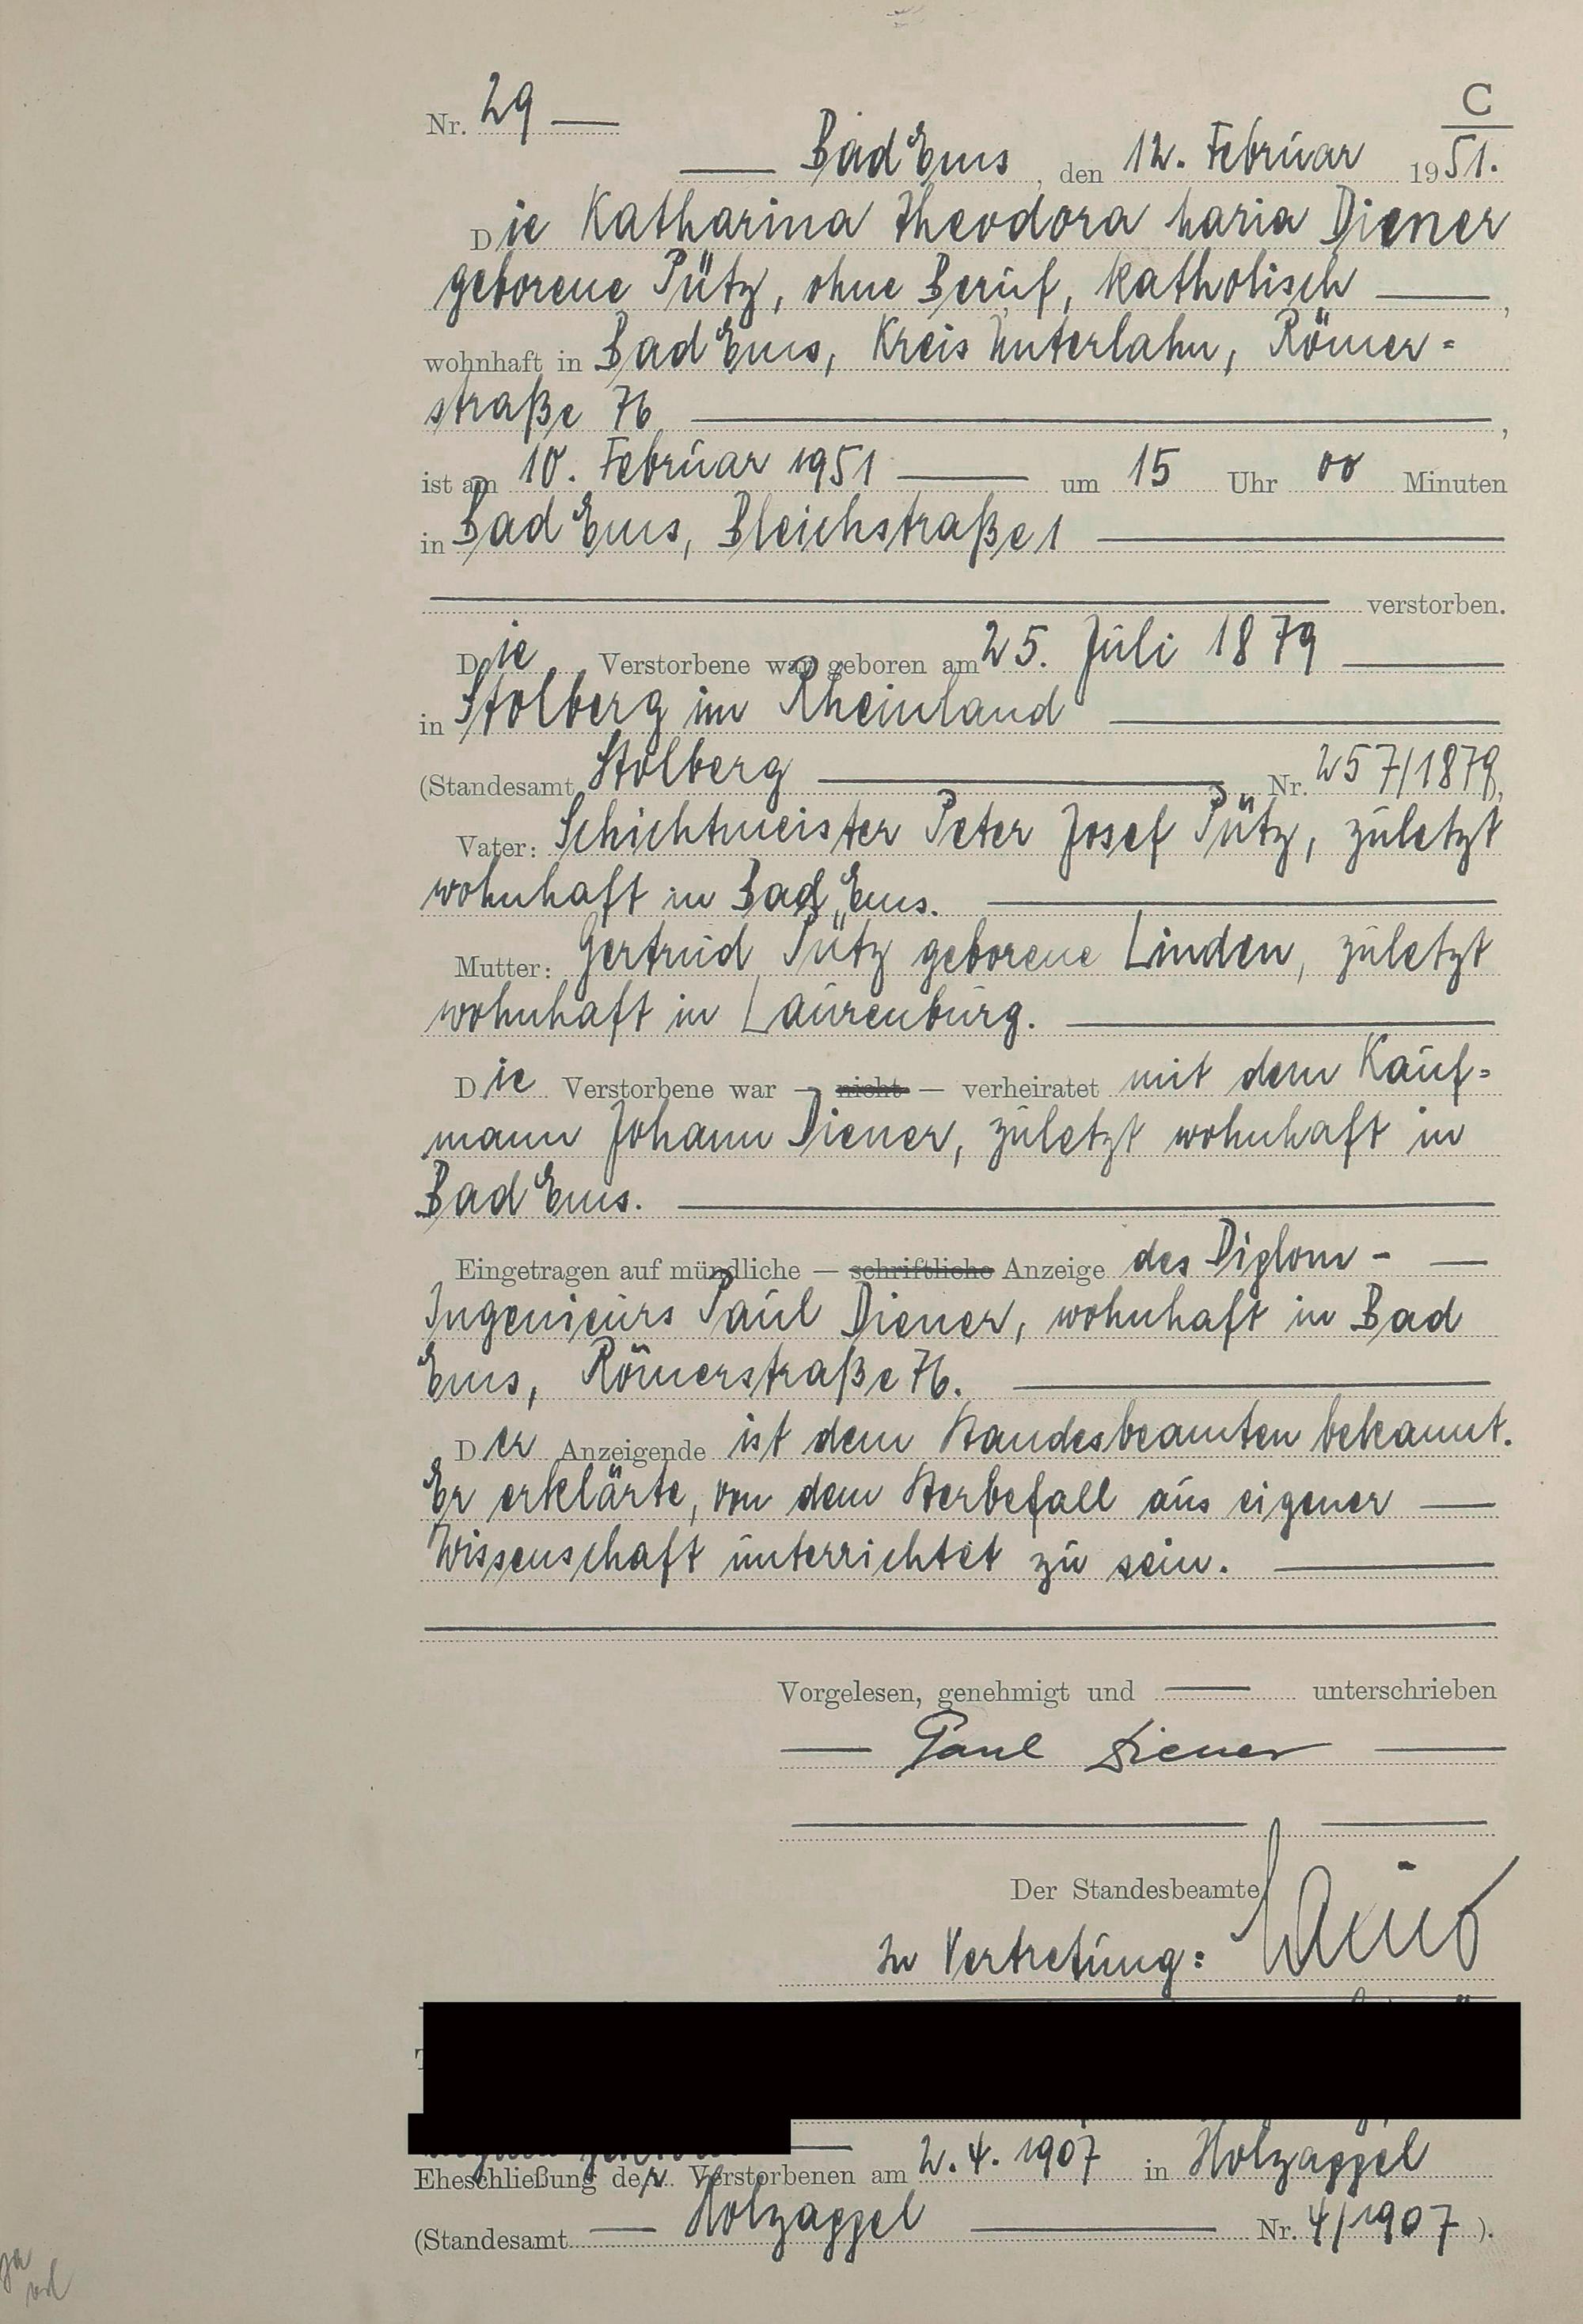 C
Nr. 29
Bad Ems, den 12. Februar 1951.
Die Katharina Theodora Maria Diener
geborene Pütz, ohne Beruf, katholisch ,
wohnhaft in Bad Ems, Kreis Unterlahn, Römer=
straße 76 ,
ist am 10. Februar 1951 um 15 Uhr 00 Minuten
in Bad Ems, Bleichstraße 1
verstorben.
Die Verstorbene war geboren am 25. Juli 1879
in Stolberg im Rheinland
(Standesamt Stolberg Nr. 257/1879,
Vater: Schichtmeister Peter Josef Pütz, zuletzt
wohnhaft in Bad Ems.
Mutter: Gertrud Pütz geborene Linden, zuletzt
wohnhaft in Laurenburg.
Die Verstorbene war — nicht — verheiratet mit dem Kauf=
mann Johann Diener, zuletzt wohnhaft in
Bad Ems.
Eingetragen auf mündliche — schriftliche Anzeige des Diplom -
Ingenieurs Paul Diener, wohnhaft in Bad
Ems, Römerstraße 76.
Der Anzeigende ist dem Standesbeamten bekannt.
Er erklärte, von dem Sterbefall aus eigener
Wissenschaft unterrichtet zu sein.
Vorgelesen, genehmigt und unterschrieben
Paul Diener
Der Standesbeamte
In Vertretung:
Eheschließung der Verstorbenen am 2.4.1907 in Holzappel
(Standesamt Holzappel Nr. 4/1907 ).